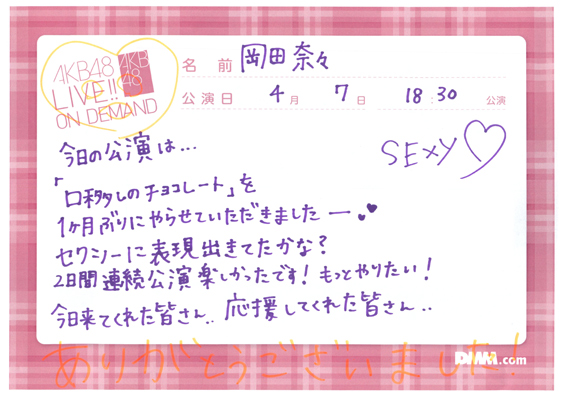 AKB48
LIVE!!
ON DEMAND
AKB
48
名 前 岡田奈々
公演日 4月 7日 18:30 公演
SEXY♡
今日の公演は...
「口移しのチョコレート」を
1ヶ月ぶりにやらせていただきましたー♥♥
セクシーに表現出きてたかな？
2日間連続公演楽しかったです！もっとやりたい！
今日来てくれた皆さん.. 応援してくれた皆さん..
ありがとうございました！
DMM.com